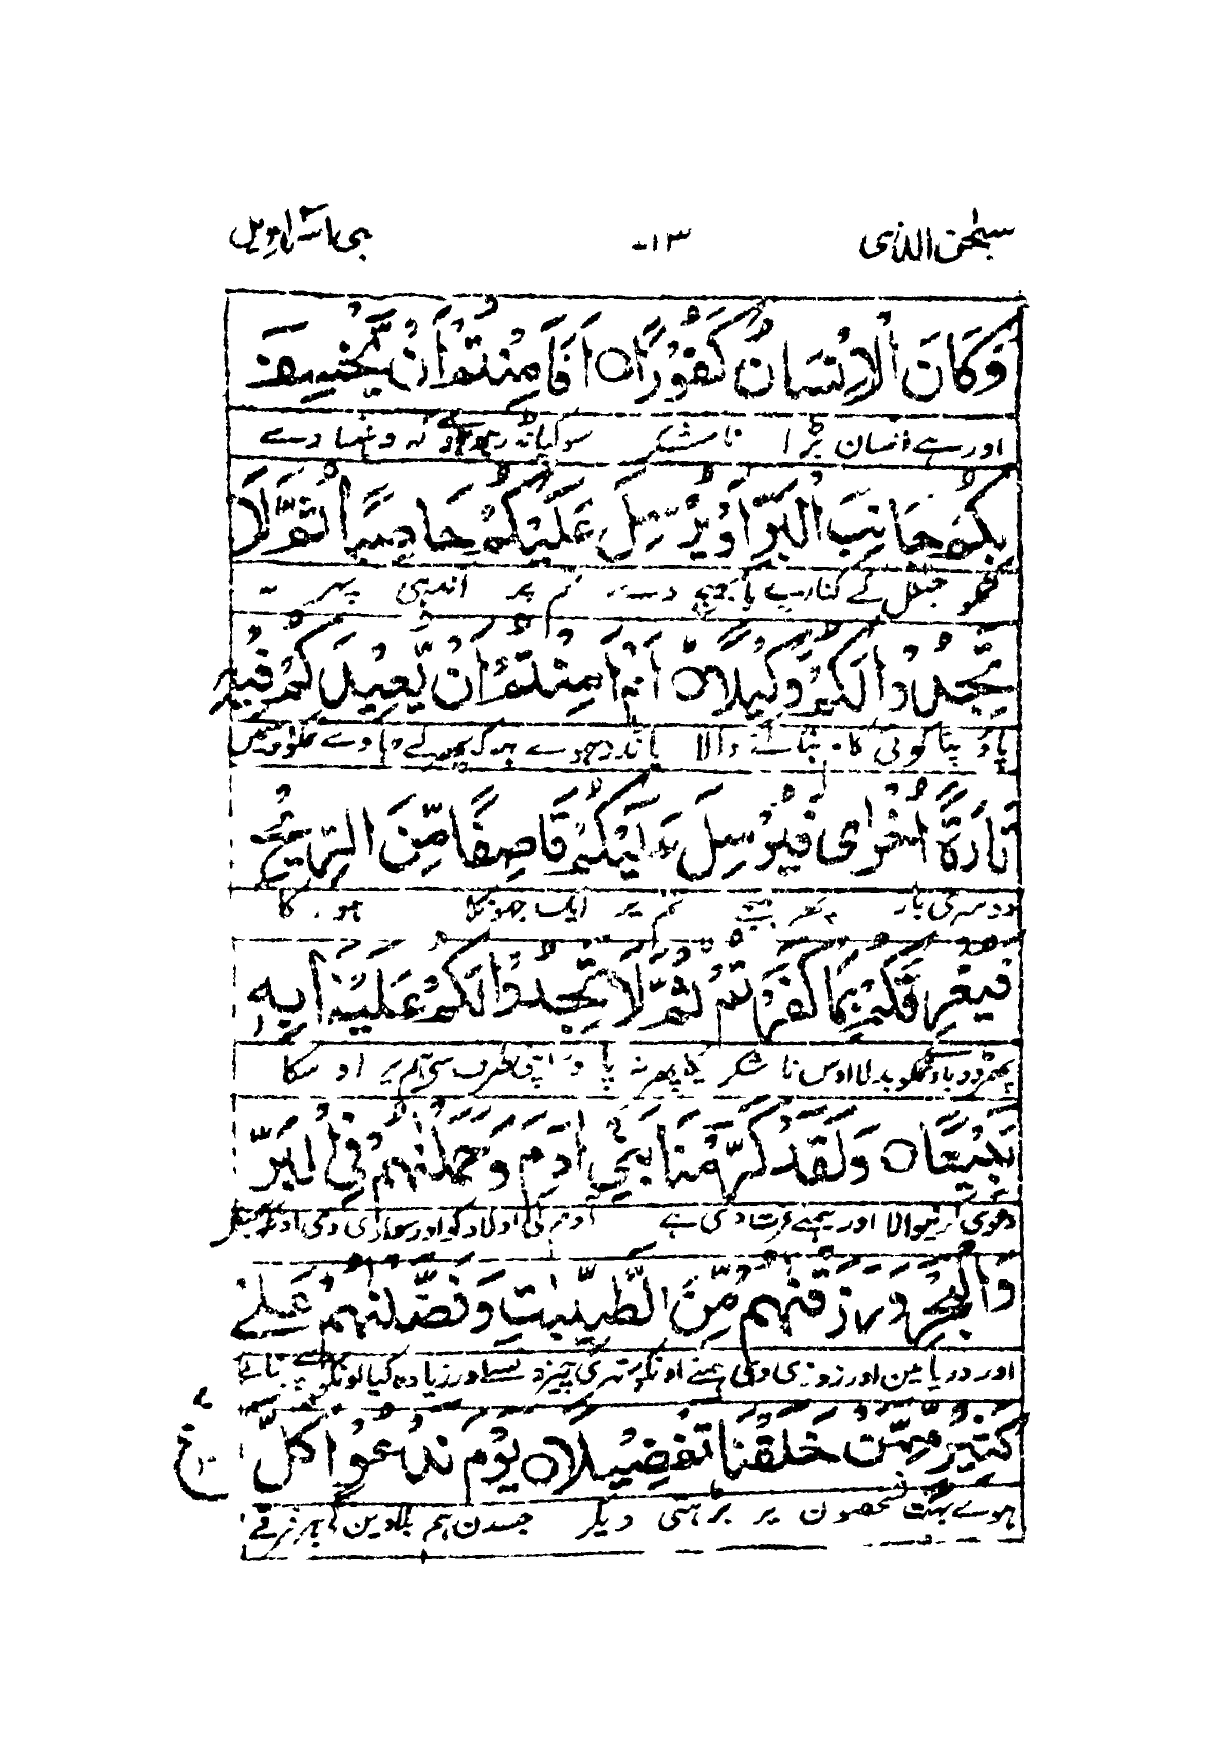 سبحٰن الذی
وَكَانَ الْاِنْسَانُ كَفُوْرًا ۝ اَفَاَمِنْتُمْ اَنْ يَّخْسِفَ
اور ہے انسان بڑا ناشکر سو کیا نڈر ہو کہ دھنسا دے
بِكُمْ جَانِبَ الْبَرِّ اَوْ يُرْسِلَ عَلَيْكُمْ حَاصِبًا ثُمَّ لَا
جنگل کے کنارے یا بھیج دے تم پر آندھی پھر نہ
تَجِدُوْا لَكُمْ وَكِيْلًا ۝ اَمْ اَمِنْتُمْ اَنْ يُّعِيْدَ كُمْ فِيْهِ
پاؤ اپنا کوئی کام بنانے والا یا نڈر ہوے ہو کہ پھر لے جاوے تمکو
تَارَةً اُخْرٰى فَيُرْسِلَ عَلَيْكُمْ قَاصِفًا مِّنَ الرِّيْحِ
دوسری بار پھر بھیجے تم پر ایک جھونکا
فَيُغْرِقَكُمْ بِمَا كَفَرْتُمْ ثُمَّ لَا تَجِدُوْا لَكُمْ عَلَيْنَا بِهٖ
بدلا اوس ناشکری کا پھر نہ پاؤ اپنی طرف سے ہم پر اوسکا
تَبِيْعًا ۝ وَلَقَدْ كَرَّمْنَا بَنِيْ اٰدَمَ وَحَمَلْنٰهُمْ فِي الْبَرِّ
دعوی کرنیوالا اور ہمنے عزت دی ہے آدم کی اولاد کو اور سواری دی
وَالْبَحْرِ وَرَزَقْنٰهُمْ مِّنَ الطَّيِّبٰتِ وَفَضَّلْنٰهُمْ عَلٰى
اور دریا مین اور روزی دی ہمنے اونکو ستھری چیزونسے اور زیادہ کیا اونکو
كَثِيْرٍ مِّمَّنْ خَلَقْنَا تَفْضِيْلًا ۝ يَوْمَ نَدْعُوْا كُلَّ
ہوے بہت شخصون پر بڑھتی دیکر جسدن ہم بلاوین گے ہر فرقے